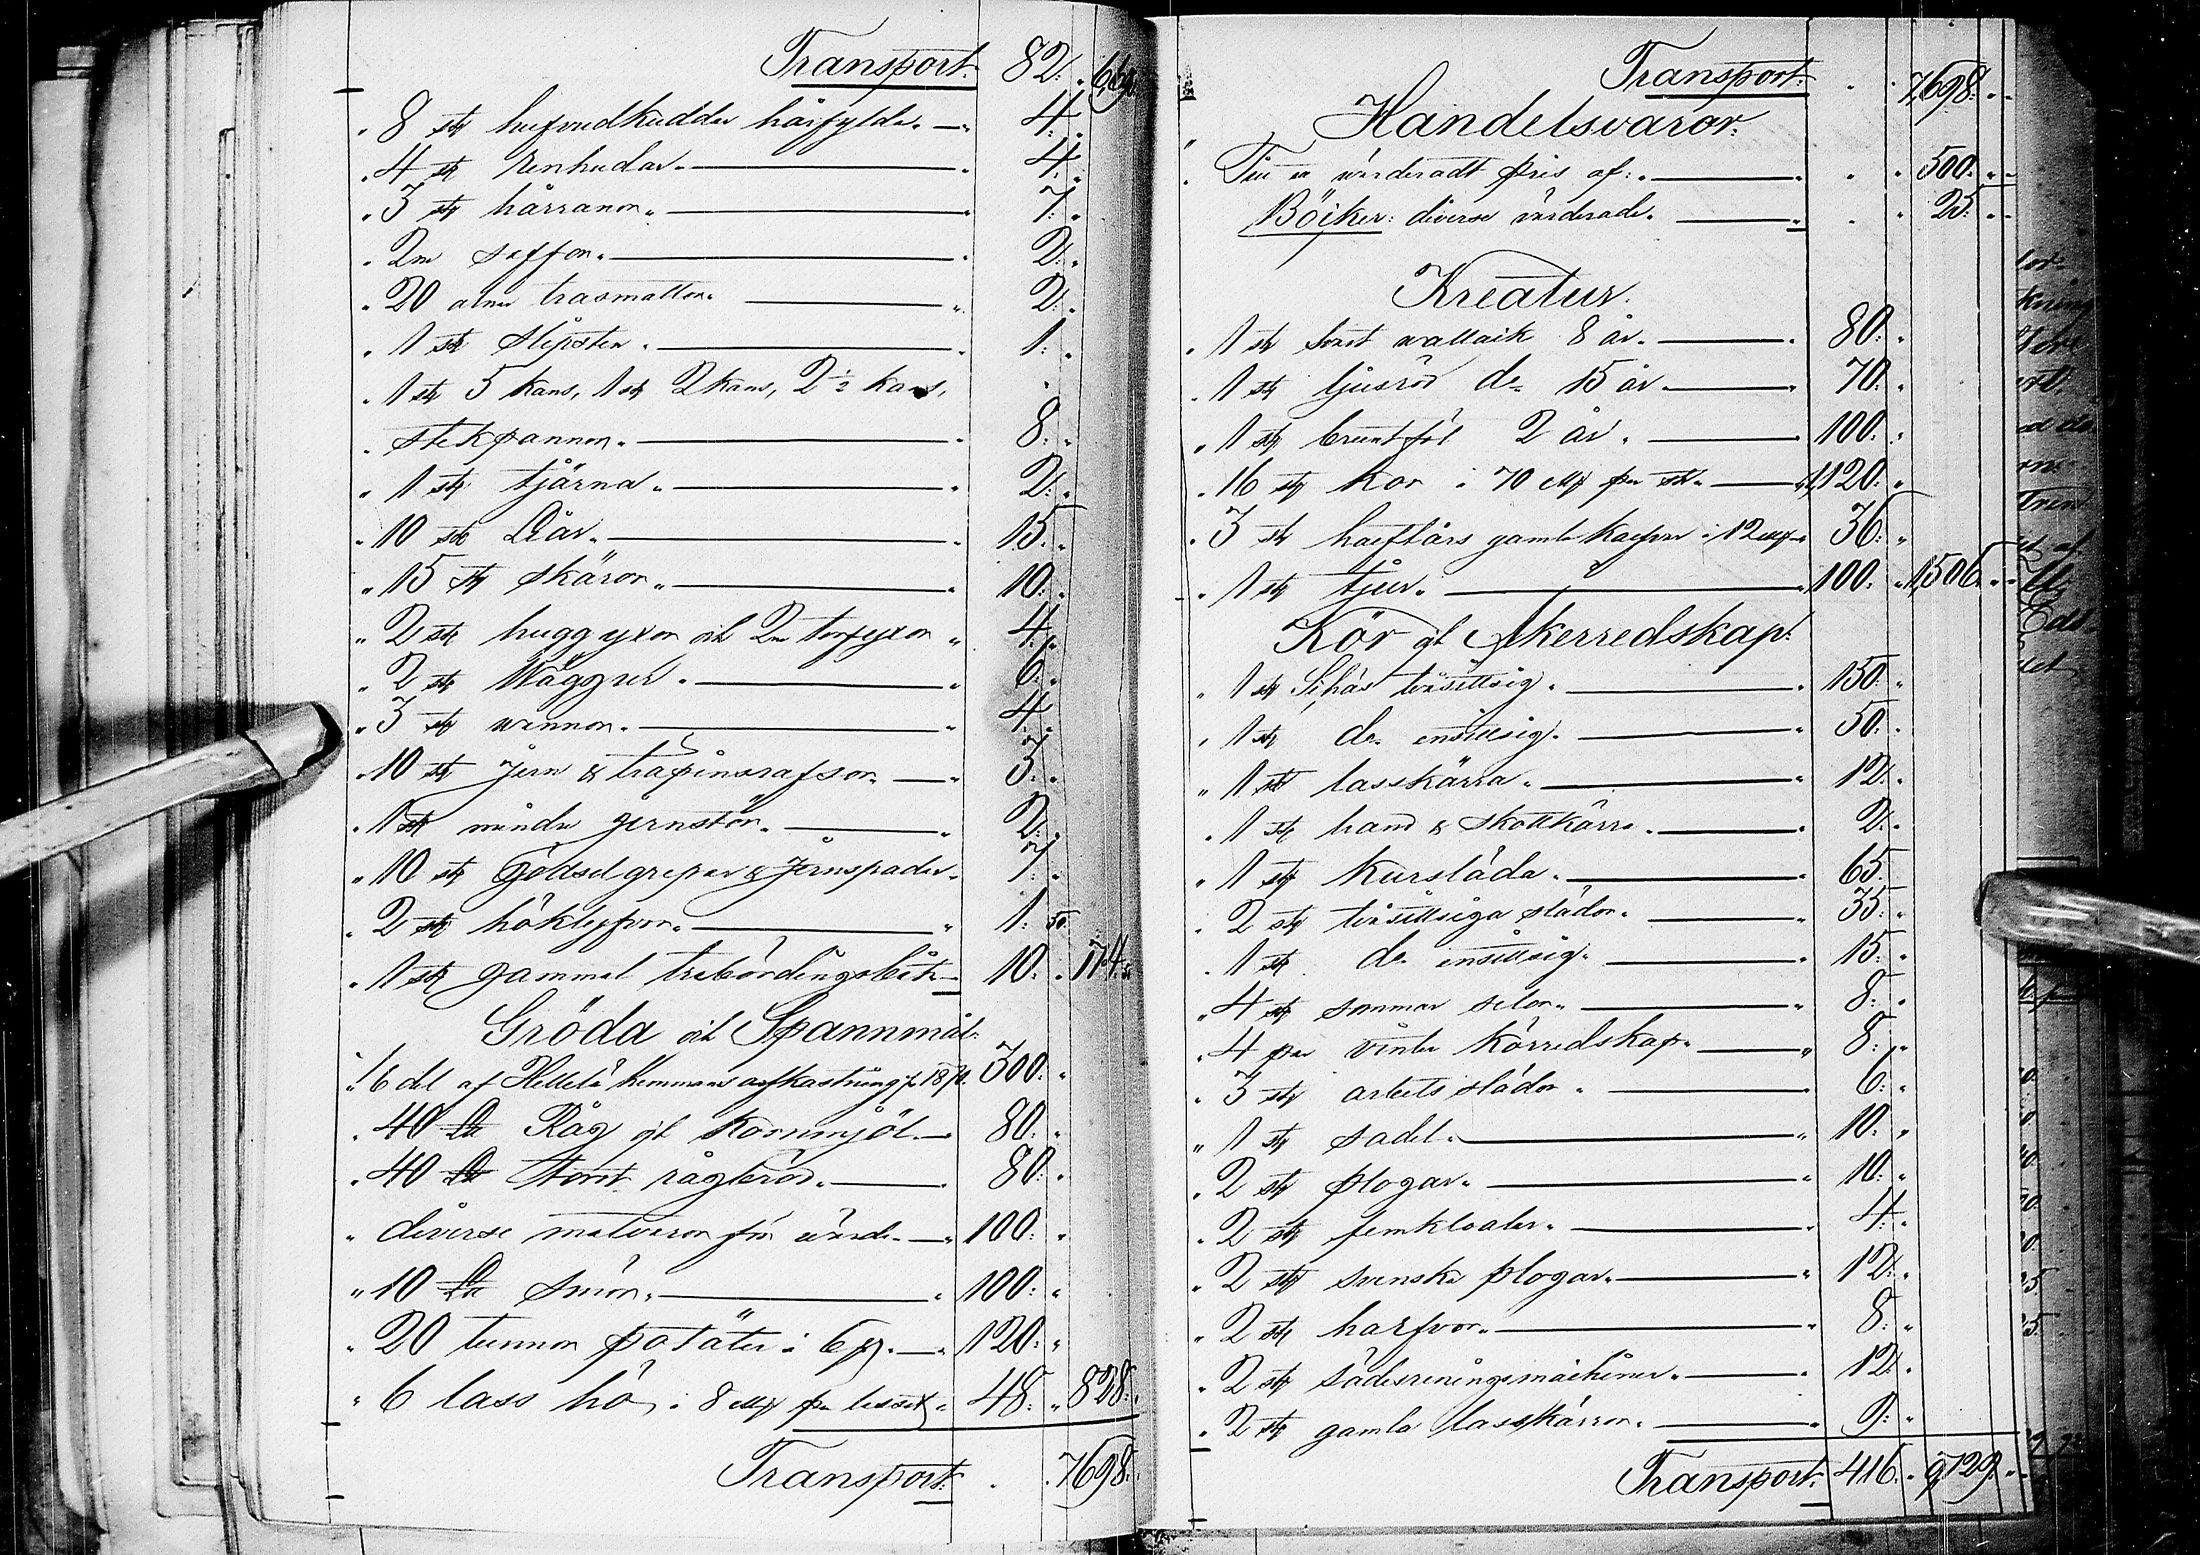 Transport: 82: „ 6,69
„ 8 st hufvudkuddar hårfylda. — 4: „
„ 4 st renhudar. — 4: „
„ 3 st hårranor. — 7: „
„ 2ne saffor. — 2: „
„ 20 alnar trasmattor. — 2: „
„ 1 st slipsten. — 1: „
„ 1 st 5 kans, 1 st 2 kans, 2 ½ kans,
„ stekpannor. — 8: „
„ 1 st tjärna. — 2: „
„ 10 st Liar. — 15: „
„ 15 st skäror. — 10: „
„ 2 st huggyxor och 2ne torfyxor „ 4: „
„ 2 st Wäggur. — 6: „
„ 3 st wannor. — 4: „
„ 10 st Jern & träpinsrafsor. — 3: „
„ 1 st mindre jernstör. — 2: „
„ 10 st Gödselgrepar & Jernspadar. 7: „
„ 2 st höklyfvor. — 1: 50.
„ 1 st gammal trebördingsbåt. — 10: „ 174: „
Gröda och Spannmål:
1/6 del af Hellelä Hemmans afkastning pr 1870. 300: „
„ 40 Råg och Kornmjöl. — 80: „
„ 40 torrt rågbröd. — 80: „
„ diverse matvaror för värde. — 100: „
„ 10 Smör. — 100: „
„ 20 tunnor potäter i 6 — 120: „
„ 6 lass hö, i 8 per lasset. 48: „ 828: „
Transport: . . 7698:
Transport: . . 7,698: „
Handelsvaror:
„ Till ett värderadt pris af: „ — „ 500: „
Böcker: diverse värderade. — „ 25: „
Kreatur.
„ 1 st svart vallack 8 år. — 80: „
„ 1 st ljusröd do 15 år. — 70: „
„ 1 st brunt föl 2 år. — 100: „
„ 16 st Kor i 70 per st. — 1,120: „
„ 3 st halfårs gamla kalfvar i 12 36: „
„ 1 st tjur. — 100: „ 1,506: „
Kör och Åkerredskap:
„ 1 st Schäs tvåsittsig. — 150: „
„ 1 st do ensittsig. — 50: „
„ 1 st lasskärra. — 12: „
„ 1 st hand & skottkärra. — 2: „
„ 1 st kurslåda. — 65:
„ 2 st tvåsittsiga slädor. — 35: „
„ 1 st do ensittsig. — 15: „
„ 4 st sommar selar. — 8: „
„ 4 par vinter körredskap. — 8: „
„ 3 st arbets slädor. — 6: „
„ 1 st sadel. — 10: „
„ 2 st plogar. — 10: „
„ 2 st femkloaler. — 4: „
„ 2 st svenska plogar. — 12: „
„ 2 st harfvor. — 8: „
„ 2 st sädesreningsmachiner. — 12: „
„ 2 st gamla lasskärror. — 9: „
Transport: 416: „ 9,729: „